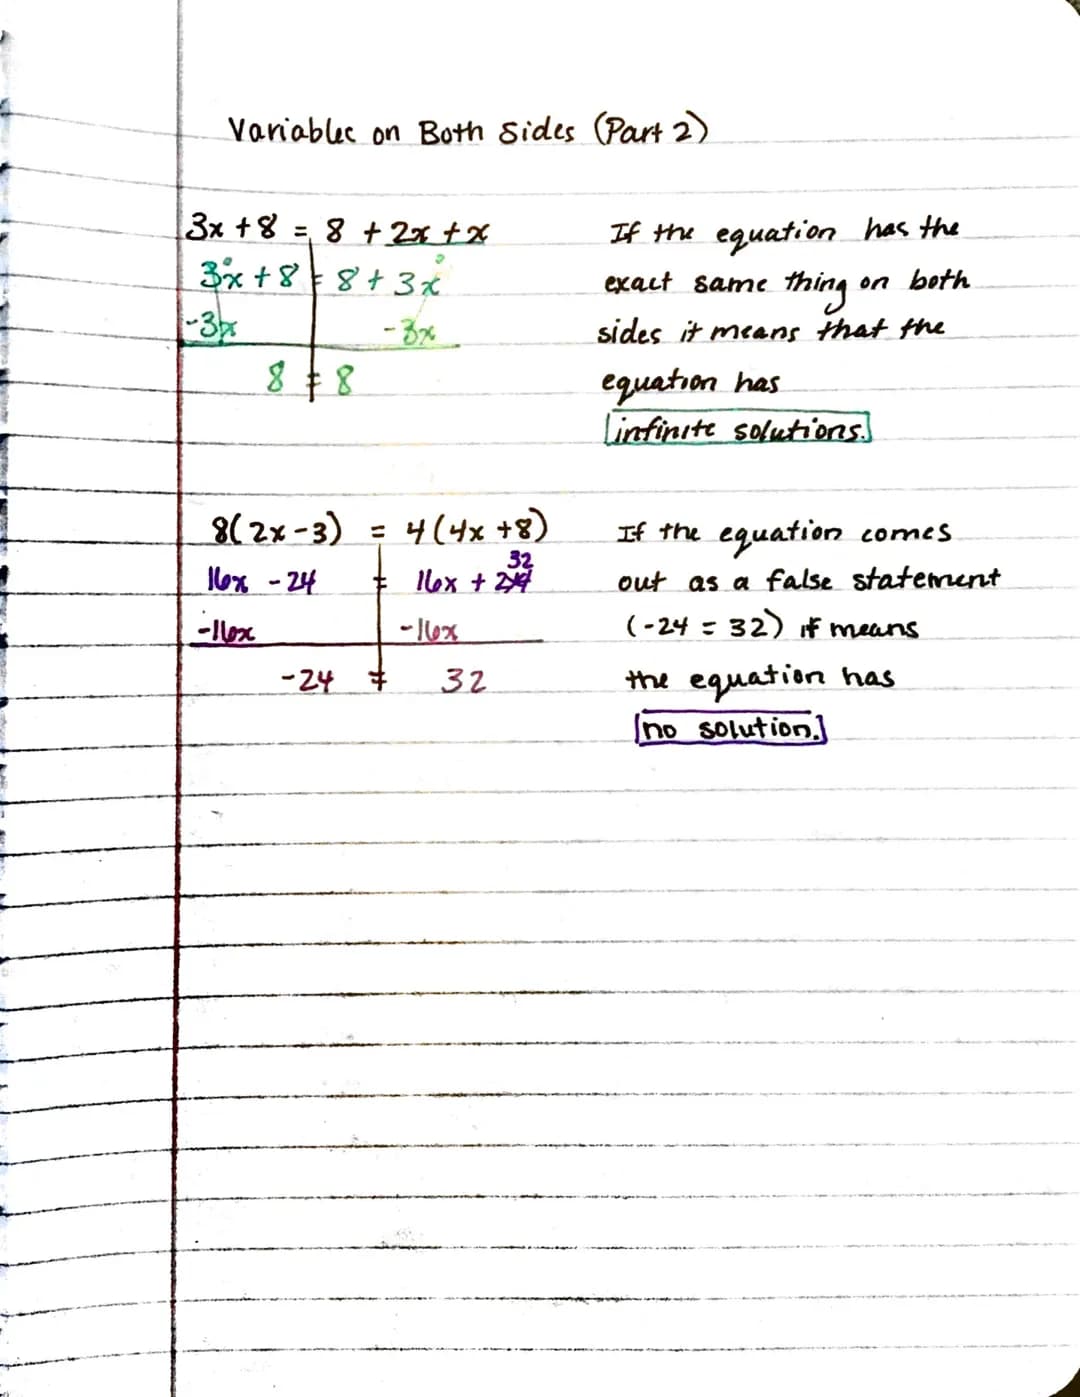 Variables on Both Sides (Part 2)
3x + 8 = 8 + 2x + x
3x + 8 = 8 + 3x
-3x -3x
8 = 8
If the equation has the
exact same thing on both
sides it means that the
equation has
infinite solutions.
8(2x - 3) = 4(4x + 8)
32
16x - 24 = 16x + 24
-16x -16x
-24 ≠ 32
If the equation comes
out as a false statement
(-24 = 32) it means
the equation has
no solution.